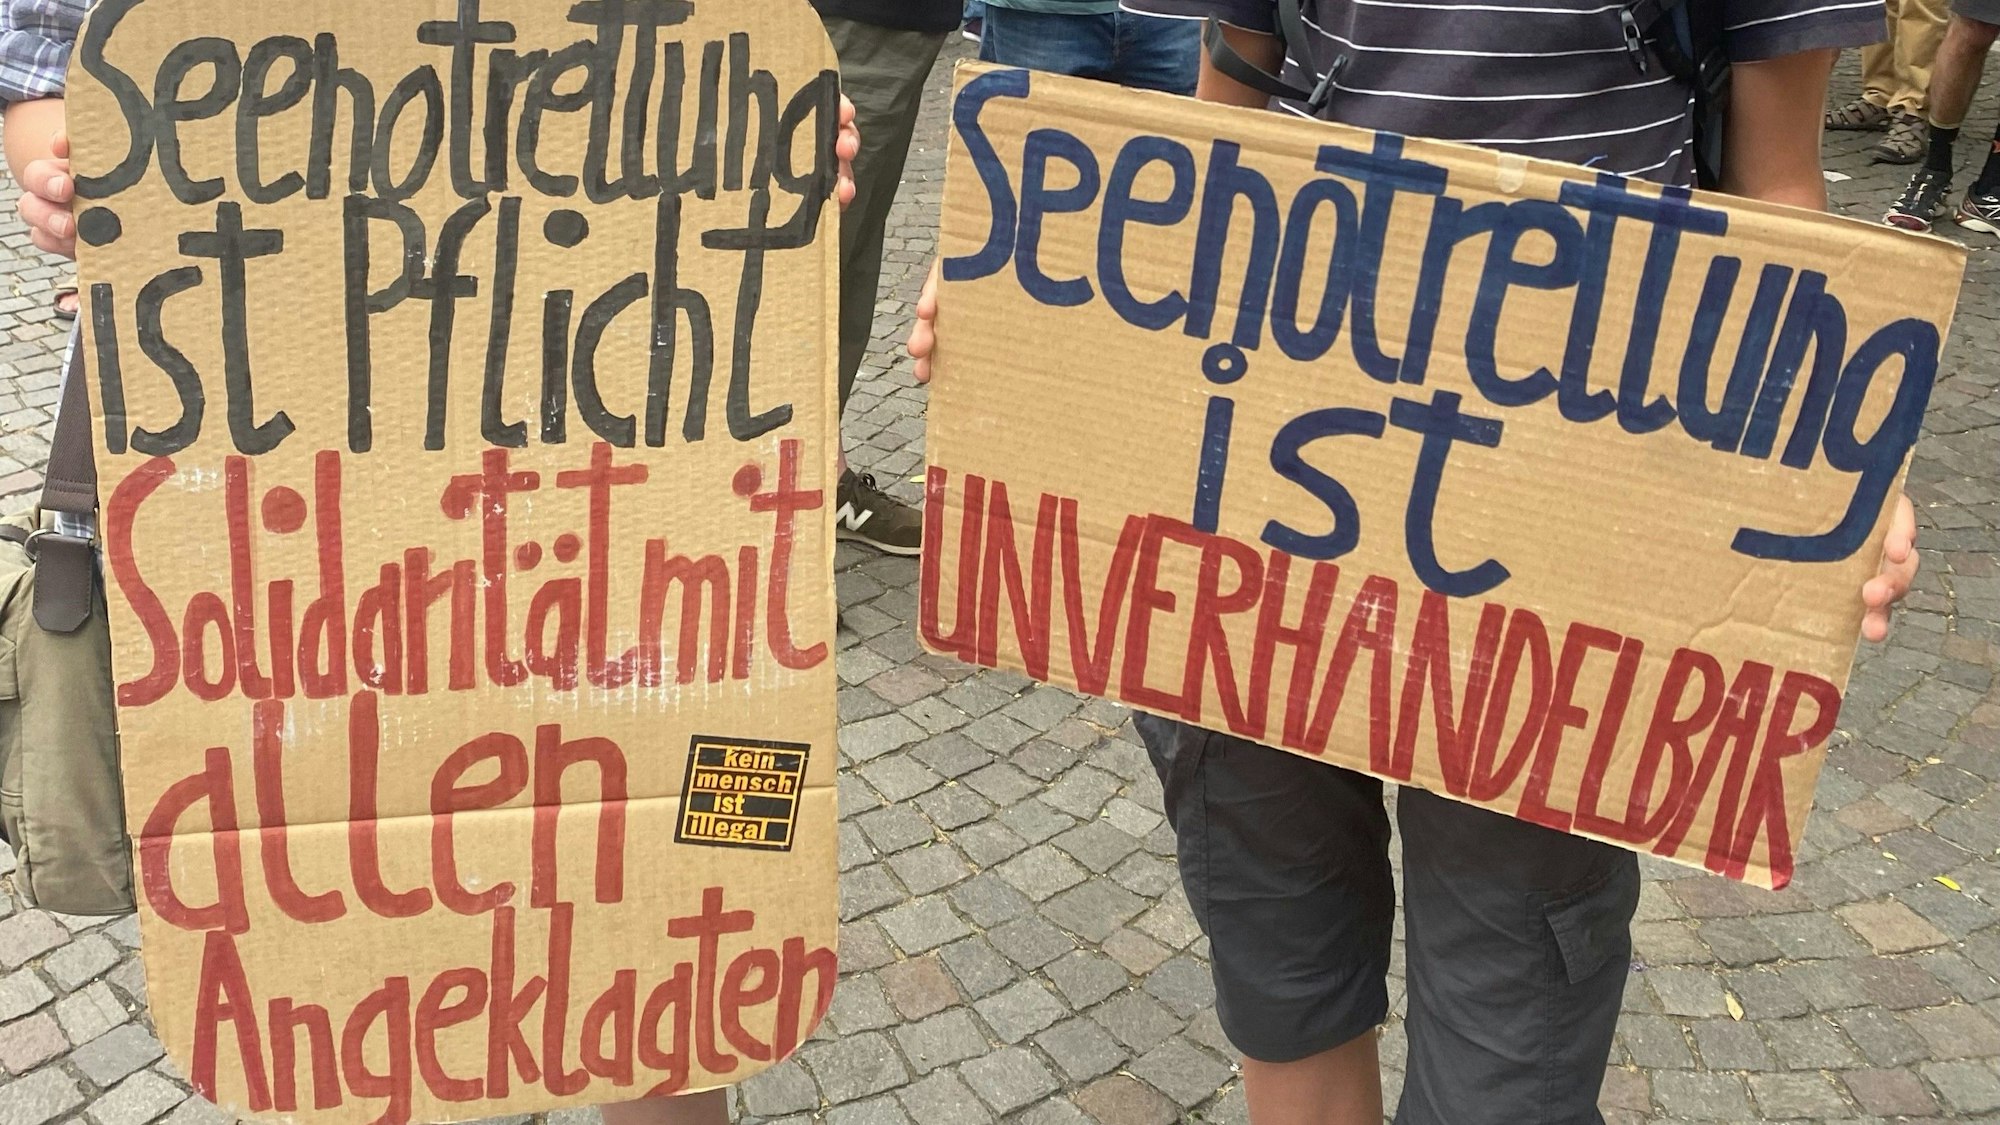 Seenotrettung
ist Pflicht
Solidarität mit
allen
Angeklagten
kein
mensch
ist
illegal
Seenotrettung
ist
UNVERHANDELBAR
N